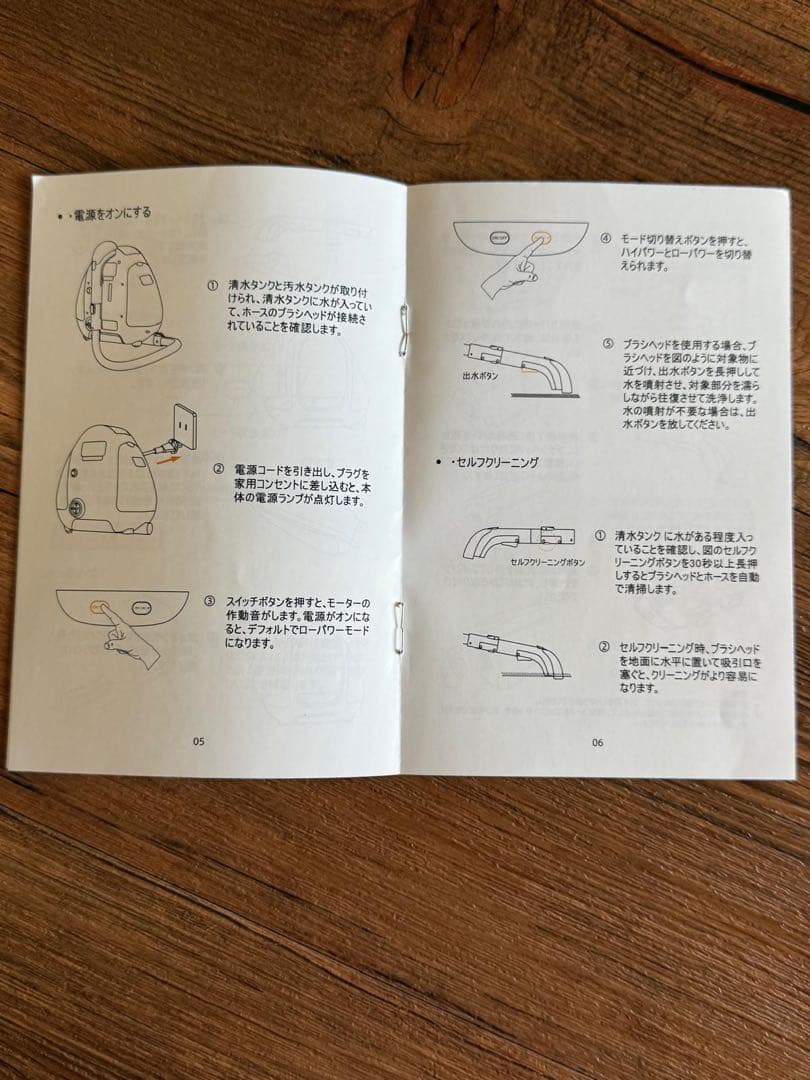 • ・電源をオンにする
① 清水タンクと汚水タンクが取り付
けられ、清水タンクに水が入ってい
て、ホースのブラシヘッドが接続さ
れていることを確認します。
② 電源コードを引き出し、プラグを
家用コンセントに差し込むと、本
体の電源ランプが点灯します。
③ スイッチボタンを押すと、モーターの
作動音がします。電源がオンにな
ると、デフォルトでローパワーモード
になります。
05
ON/OFF
④ モード切り替えボタンを押すと、
ハイパワーとローパワーを切り替
えられます。
出水ボタン
⑤ ブラシヘッドを使用する場合、ブ
ラシヘッドを図のように対象物に
近づけ、出水ボタンを長押しして
水を噴射させ、対象部分を濡ら
しながら往復させて洗浄します。
水の噴射が不要な場合は、出
水ボタンを放してください。
• ・セルフクリーニング
セルフクリーニングボタン
① 清水タンク に水がある程度入っ
ていることを確認し、図のセルフク
リーニングボタンを30秒以上長押
しするとブラシヘッドとホースを自動
で清掃します。
② セルフクリーニング時、ブラシヘッド
を地面に水平に置いて吸引口を
塞ぐと、クリーニングがより容易に
なります。
06